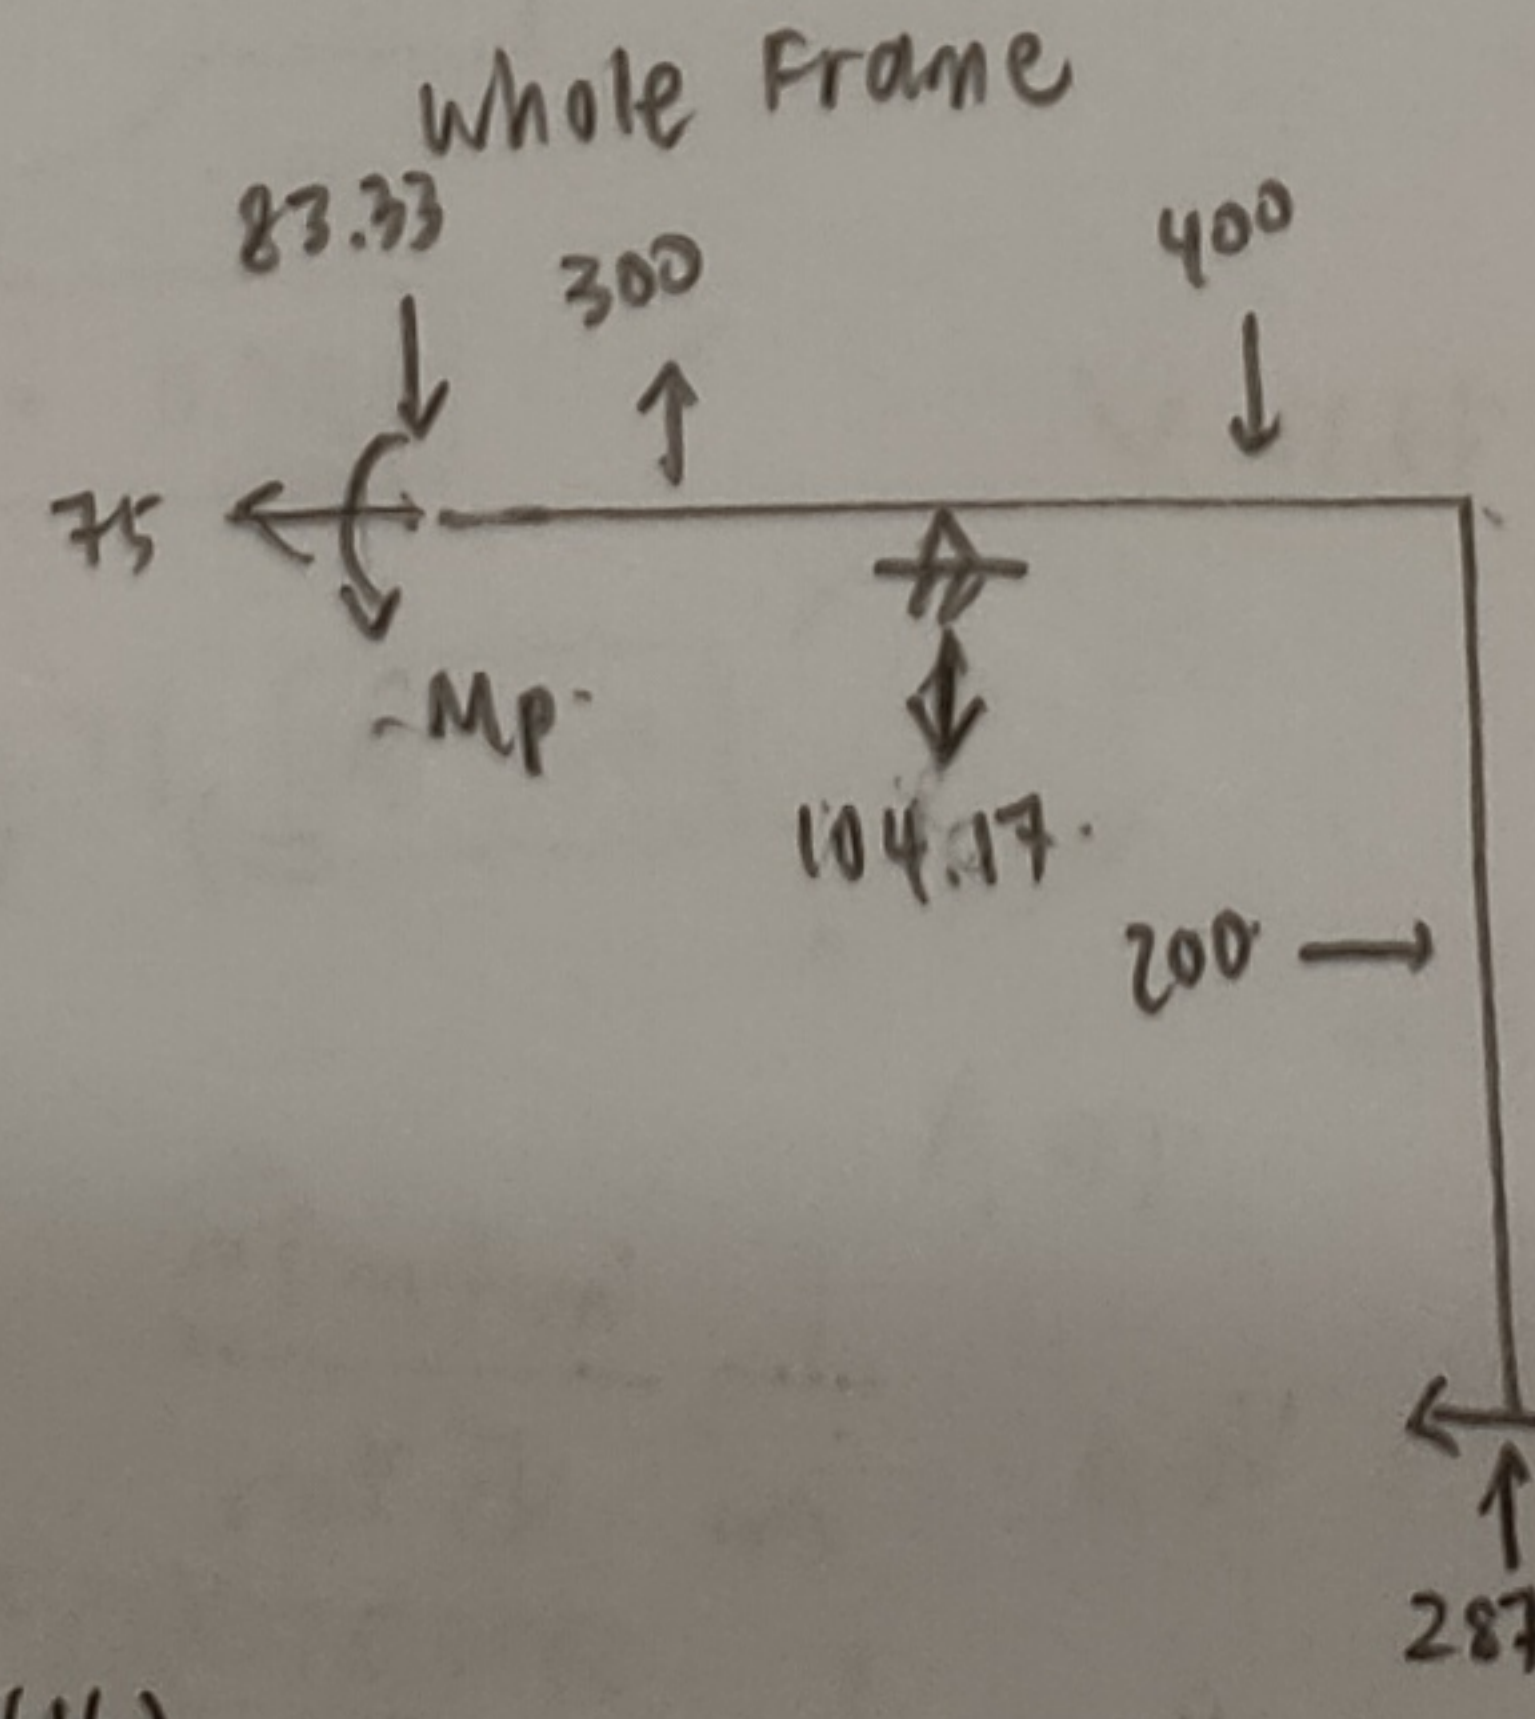 Whole Frame
83.33
300
400
75
-Mp.
104.17.
200
287